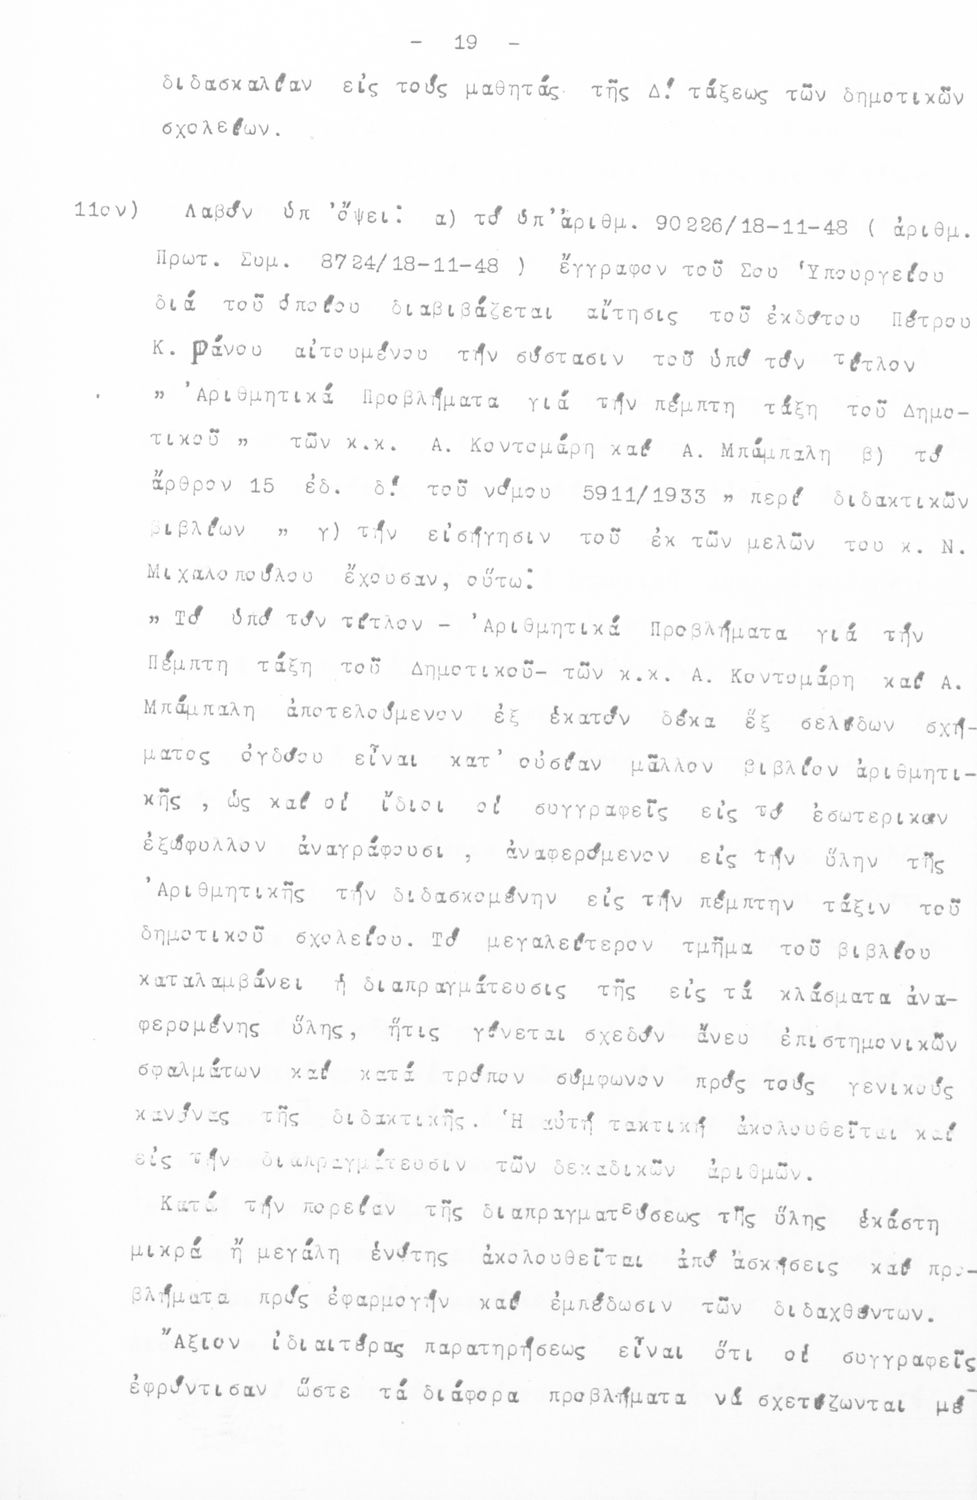 - 19 -
διδασκαλίαν εἰς τούς μαθητάς τῆς Δ! τάξεως τῶν δημοτικῶν
σχολείων.
11ον) Λαβόν ὑπ 'ὄψει: α) τό ὑπ'ἀριθμ. 90226/18-11-48 ( ἀριθμ.
Πρωτ. Συμ. 8724/18-11-48 ) ἔγγραφον τοῦ Σου Ὑπουργείου
διά τοῦ ὁποίου διαβιβάζεται αἴτησις τοῦ ἐκδότου Πέτρου
Κ. Ράνου αἰτουμένου τήν σύστασιν τοῦ ὑπό τόν τίτλον
" Ἀριθμητικά Προβλήματα γιά τήν πέμπτη τάξη τοῦ Δημο-
τικοῦ " τῶν κ.κ. Α. Κοντομάρη καί Α. Μπάμπαλη β) τό
ἄρθρον 15 ἐδ. δ! τοῦ νόμου 5911/1933 " περί διδακτικῶν
βιβλίων " γ) τήν εἰσήγησιν τοῦ ἐκ τῶν μελῶν του κ. Ν.
Μιχαλοπούλου ἔχουσαν, οὕτω:
" Τό ὑπό τόν τίτλον - Ἀριθμητικά Προβλήματα γιά τήν
Πέμπτη τάξη τοῦ Δημοτικοῦ- τῶν κ.κ. Α. Κοντομάρη καί Α.
Μπάμπαλη ἀποτελούμενον ἐξ ἑκατόν δέκα ἕξ σελίδων σχή-
ματος ὀγδόου εἶναι κατ' οὐσίαν μᾶλλον βιβλίον ἀριθμητι-
κῆς , ὡς καί οἱ ἴδιοι οἱ συγγραφεῖς εἰς τό ἐσωτερικον
ἐξώφυλλον ἀναγράφουσι , ἀναφερόμενον εἰς τήν ὕλην τῆς
Ἀριθμητικῆς τήν διδασκομένην εἰς τήν πέμπτην τάξιν τοῦ
δημοτικοῦ σχολείου. Τό μεγαλείτερον τμῆμα τοῦ βιβλίου
καταλαμβάνει ἡ διαπραγμάτευσις τῆς εἰς τά κλάσματα ἀνα-
φερομένης ὕλης, ἥτις γίνεται σχεδόν ἄνευ ἐπιστημονικῶν
σφαλμάτων καί κατά τρόπον σύμφωνον πρός τούς γενικούς
κανόνας τῆς διδακτικῆς. Ἡ αὐτή τακτική ἀκολουθεῖται καί
εἰς τήν διαπραγμάτευσιν τῶν δεκαδικῶν ἀριθμῶν.
Κατά τήν πορείαν τῆς διαπραγματεύσεως τῆς ὕλης ἑκάστη
μικρά ἤ μεγάλη ἑνότης ἀκολουθεῖται ἀπό ἀσκήσεις καί προ-
βλήματα πρός ἐφαρμογήν καί ἐμπέδωσιν τῶν διδαχθέντων.
Ἄξιον ἰδιαιτέρας παρατηρήσεως εἶναι ὅτι οἱ συγγραφεῖς
ἐφρόντισαν ὥστε τά διάφορα προβλήματα νά σχετίζωνται μέ